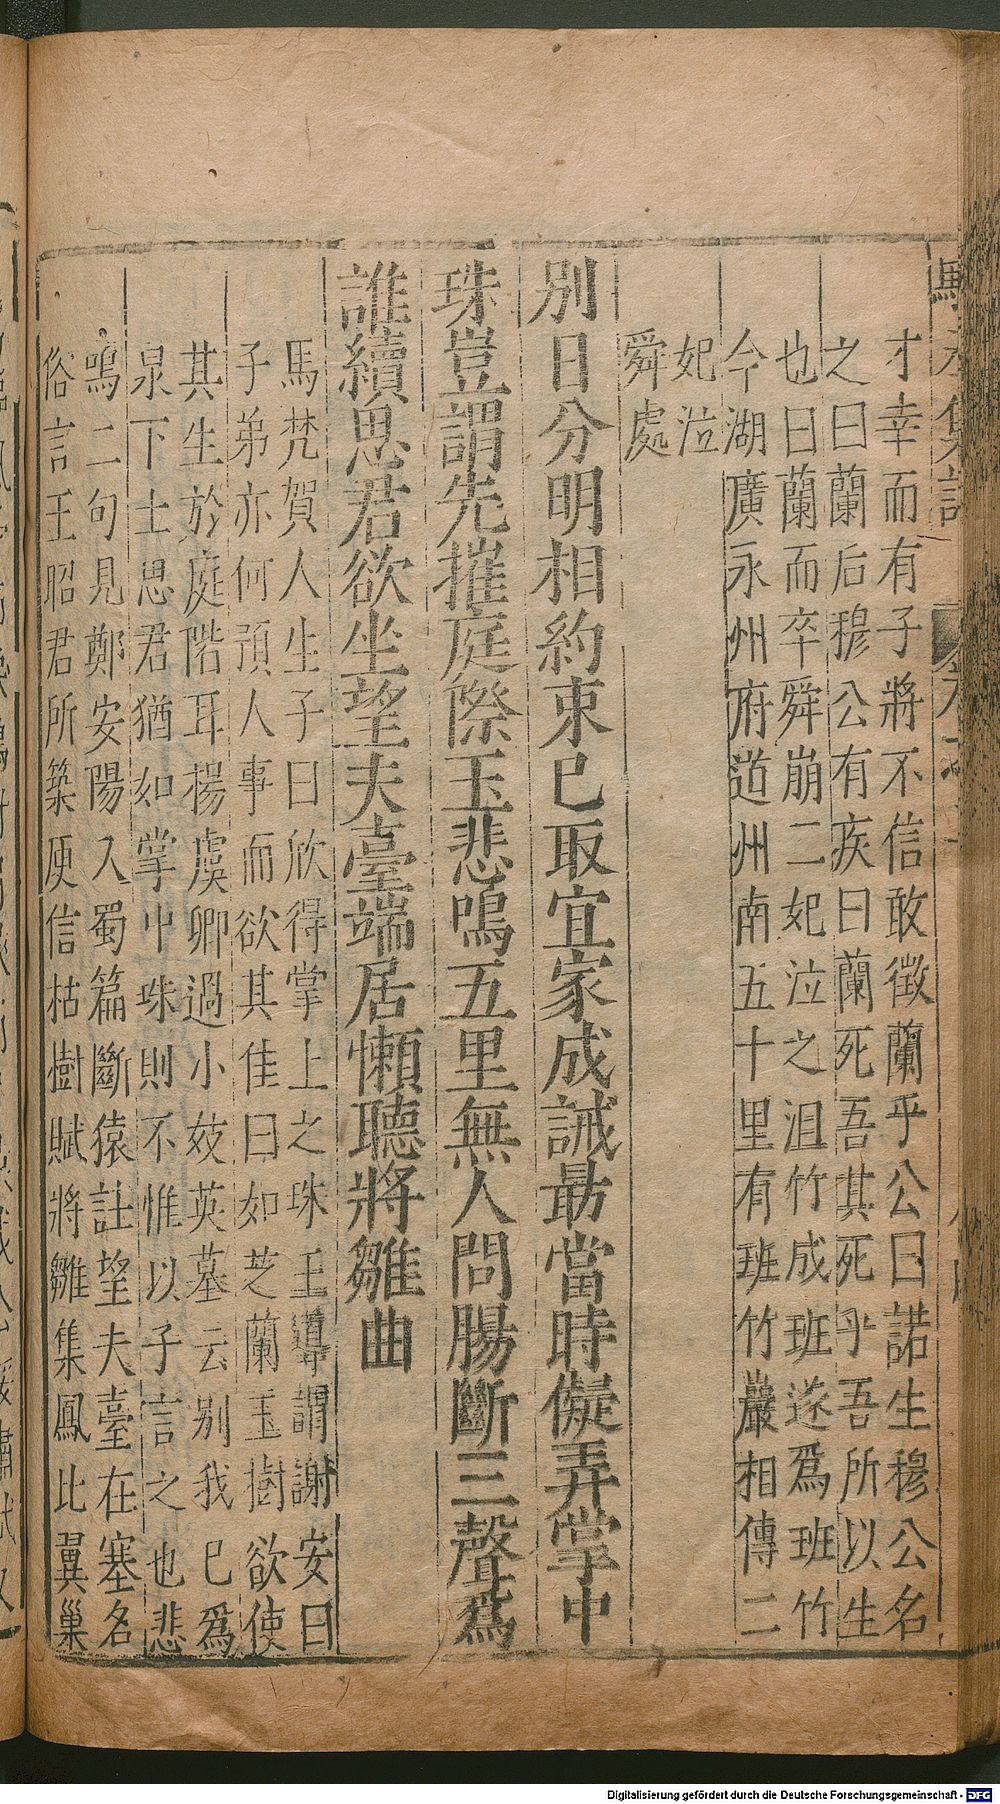 才幸而有子將不信敢徵蘭乎公曰諾生穆公名
之曰蘭后穆公有疾曰蘭死吾其死乎吾所以生
也曰蘭而卒舜崩二妃泣之沮竹成班遂爲班竹
今湖廣永州府道州南五十里有班竹巖相傳二
妃泣
舜處
別日分明相約束已取宜家成誡最當時儗弄掌中
珠豈謂先摧庭際玉悲鳴五里無人問腸斷三聲爲
誰續思君欲坐望夫臺端居懶聽將雛曲
馬梵賀人生子曰欣得掌上之珠王導謂謝安曰
子弟亦何預人事而欲其佳曰如芝蘭玉樹欲使
其生於庭階耳楊虞卿過小妓英墓云別我已爲
泉下土思君猶如掌中珠則不惟以子言之也悲
鳴二句見鄭安陽入蜀篇斷猿註望夫臺在塞名
俗言王昭君所築庾信枯樹賦將雛集鳳比翼巢
Digitalisierung gefördert durch die Deutsche Forschungsgemeinschaft - DFG